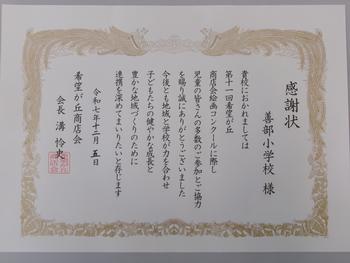 感謝状
善部小学校 様
貴校におかれましては
第十一回希望が丘
商店会絵画コンクールに際し
児童の皆さんの多数のご参加とご協力
を賜り誠にありがとうございました
今後とも地域と学校が力を合わせ
子どもたちの健やかな成長と
豊かな地域づくりのために
連携を深めてまいりたいと存じます
令和七年十二月 五日
希望が丘商店会
会長 溝 怜史